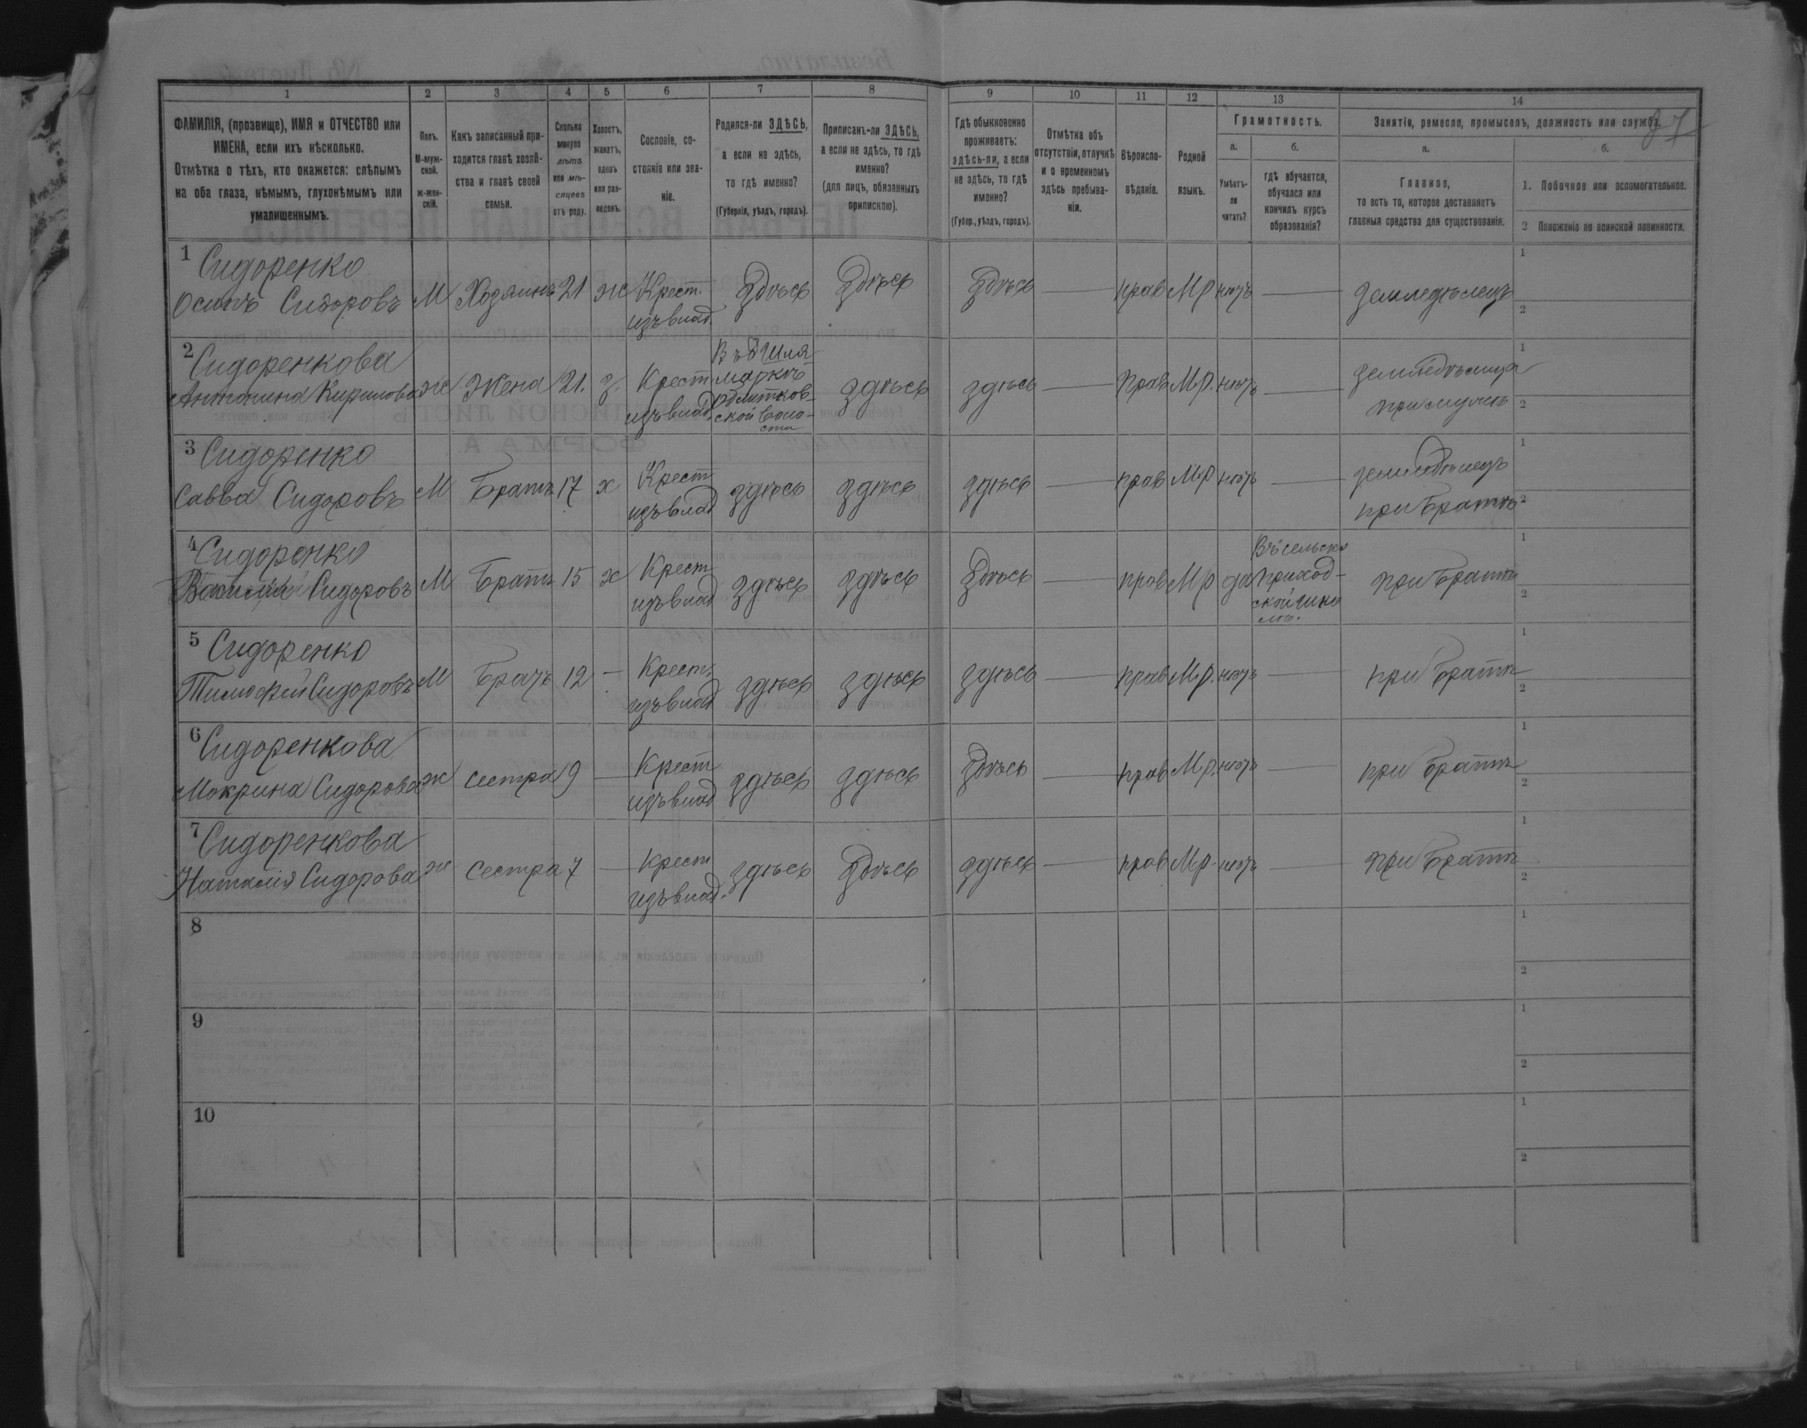 1 2 3 4 5 6 7 8 9 10 11 12 13 14
ФАМИЛІЯ, (прозвище), ИМЯ и ОТЧЕСТВО или
ИМЕНА, если ихъ нѣсколько.
Отмѣтка о тѣхъ, кто окажется: слѣпымъ
на оба глаза, нѣмымъ, глухонѣмымъ или
умалишеннымъ.
Полъ.
М-муж-
ской.
ж-жен-
скій.
Какъ записанный при-
ходится главѣ хозяй-
ства и главѣ своей
семьи.
Сколько
минуло
лѣтъ
или мѣ-
сяцевъ
отъ роду.
Холостъ,
женатъ,
вдовъ
или раз-
веденъ.
Сословіе, со-
стояніе или зва-
ніе.
Родился-ли ЗДѢСЬ,
а если не здѣсь,
то гдѣ именно?
(Губернія, уѣздъ, городъ).
Приписанъ-ли ЗДѢСЬ,
а если не здѣсь, то гдѣ
именно?
(для лицъ, обязанныхъ
припискою).
Гдѣ обыкновенно
проживаетъ:
здѣсь-ли, а если
не здѣсь, то гдѣ
именно?
(Губер., уѣздъ, городъ).
Отмѣтка объ
отсутствіи, отлучкѣ
и о временномъ
здѣсь пребыва-
ніи.
Вѣроиспо-
вѣданіе.
Родной
языкъ.
Грамотность.
а.
Умѣетъ-
ли
читать?
б.
гдѣ обучается,
обучался или
кончилъ курсъ
образованія?
Занятіе, ремесло, промыселъ, должность или служба.
37
а.
Главное,
то есть то, которое доставляетъ
главныя средства для существованія.
б.
1. Побочное или вспомогательное.
2 Положеніе по воинской повинности.
1 Сидоренко
Осипъ Сидоровъ М Хозяинъ 21 ж Крест. здѣсь здѣсь здѣсь — прав Мр нѣтъ — земледѣлецъ
изъ влад.
1
2
2 Сидоренкова
Антонина Кирилова ж Жена 21. з Крест здѣсь здѣсь — прав Мр. нѣтъ —
изъ влад
ской воло-
сти
при мужѣ
1
2
3 Сидоренко
Савва Сидоровъ М Братъ 17 х Крест здѣсь здѣсь здѣсь — прав Мр нѣтъ — земледѣлецъ
изъ влад
при братѣ
1
2
4 Сидоренко
Василій Сидоровъ М Братъ 15 х Крест здѣсь здѣсь здѣсь — прав Мр да при братѣ
изъ влад
Въ сельско
приход-
ской шко
лѣ.
1
2
5 Сидоренко
Тимофей Сидоровъ М Братъ 12 — Крест. здѣсь здѣсь здѣсь — прав Мр. нѣтъ — при братѣ
изъ влад
1
2
6 Сидоренкова
Мокрина Сидорова ж сестра 9 — Крест здѣсь здѣсь здѣсь — прав Мр. нѣтъ — при братѣ
изъ влад
1
2
7 Сидоренкова
Наталія Сидорова ж сестра 7 — Крест здѣсь здѣсь здѣсь — прав Мр. нѣтъ — при братѣ
изъ влад.
1
2
8
1
2
9
1
2
10
1
2